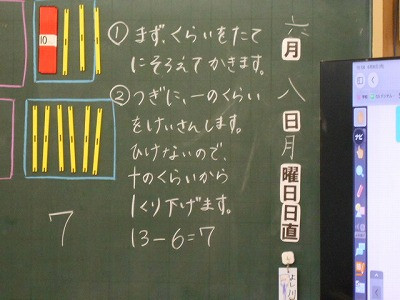 六月八日月曜日日直
① まず、くらいをたて
にそろえてかきます。
② つぎに、一のくらい
をけいさんします。
ひけないので、
十のくらいから
1くり下げます。
13-6=7
10
7